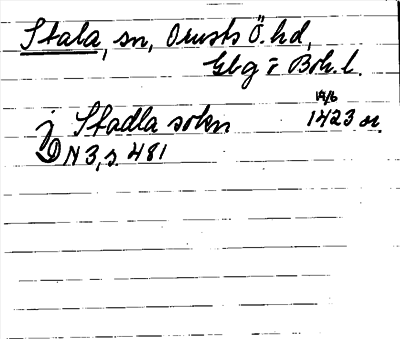 Stala, sn, Orusts Ö. hd,
Gbg o Boh. l.
19/6
j Stadla sokn 1423 or.
DN 3, s. 481